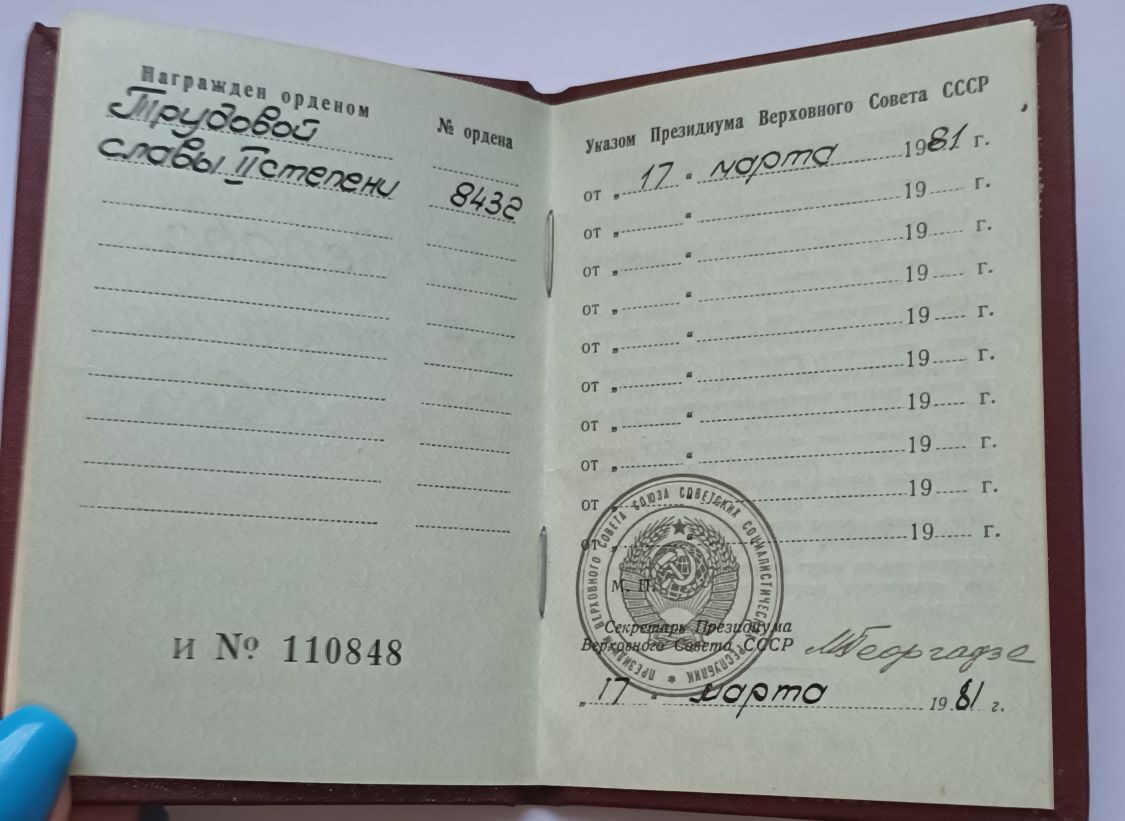 Награжден орденом
№ ордена
Трудовой
славы II степени
8432
И № 110848
Указом Президиума Верховного Совета СССР
от „ 17 “ марта 1981 г.
от „ “ 19 г.
от „ “ 19 г.
от „ “ 19 г.
от „ “ 19 г.
от „ “ 19 г.
от „ “ 19 г.
от „ “ 19 г.
от „ “ 19 г.
от „ “ 19 г.
ПРЕЗИДИУМ ВЕРХОВНОГО СОВЕТА СОЮЗА СОВЕТСКИХ СОЦИАЛИСТИЧЕСКИХ РЕСПУБЛИК
М. П.
Секретарь Президиума
Верховного Совета СССР
МГеоргадзе
„ 17 “ марта 1981 г.